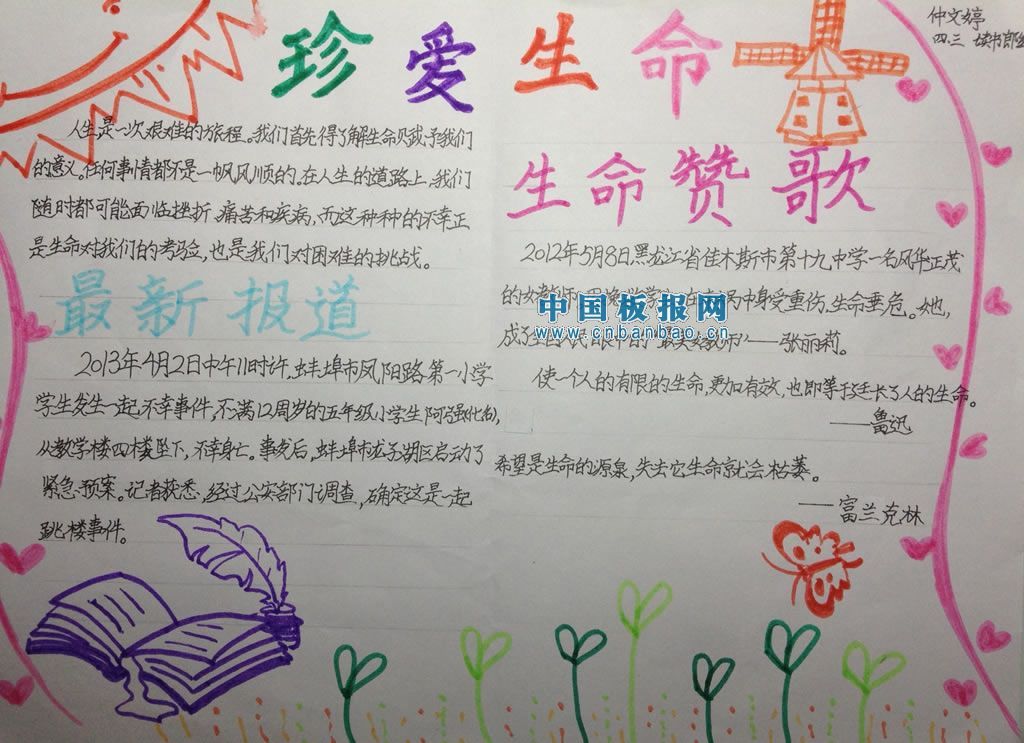 珍爱生命
仲文婷
四.三 读书郎
人生是一次艰难的旅程。我们首先得了解生命赋予我们
的意义。任何事情都不是一帆风顺的。在人生的道路上,我们
随时都可能面临挫折、痛苦和疾病,而这种种的不幸正
是生命对我们的考验,也是我们对困难的挑战。
最新报道
2013年4月2日中午11时许,蚌埠市凤阳路第一小学
学生发生一起不幸事件,不满12周岁的五年级小学生阿强(化名),
从教学楼四楼坠下,不幸身亡。事发后,蚌埠市龙子湖区启动了
紧急预案。记者获悉,经过公安部门调查,确定这是一起
跳楼事件。
生命赞歌
2012年5月8日,黑龙江省佳木斯市第十九中学一名风华正茂
的女教师 中身受重伤,生命垂危。她,
成了 "最美女教师"——张丽莉。
中国板报网
www.cnbanbao.cn
使一个人的有限的生命,更加有效,也即等于延长了人的生命。
——鲁迅
希望是生命的源泉,失去它生命就会枯萎。
——富兰克林